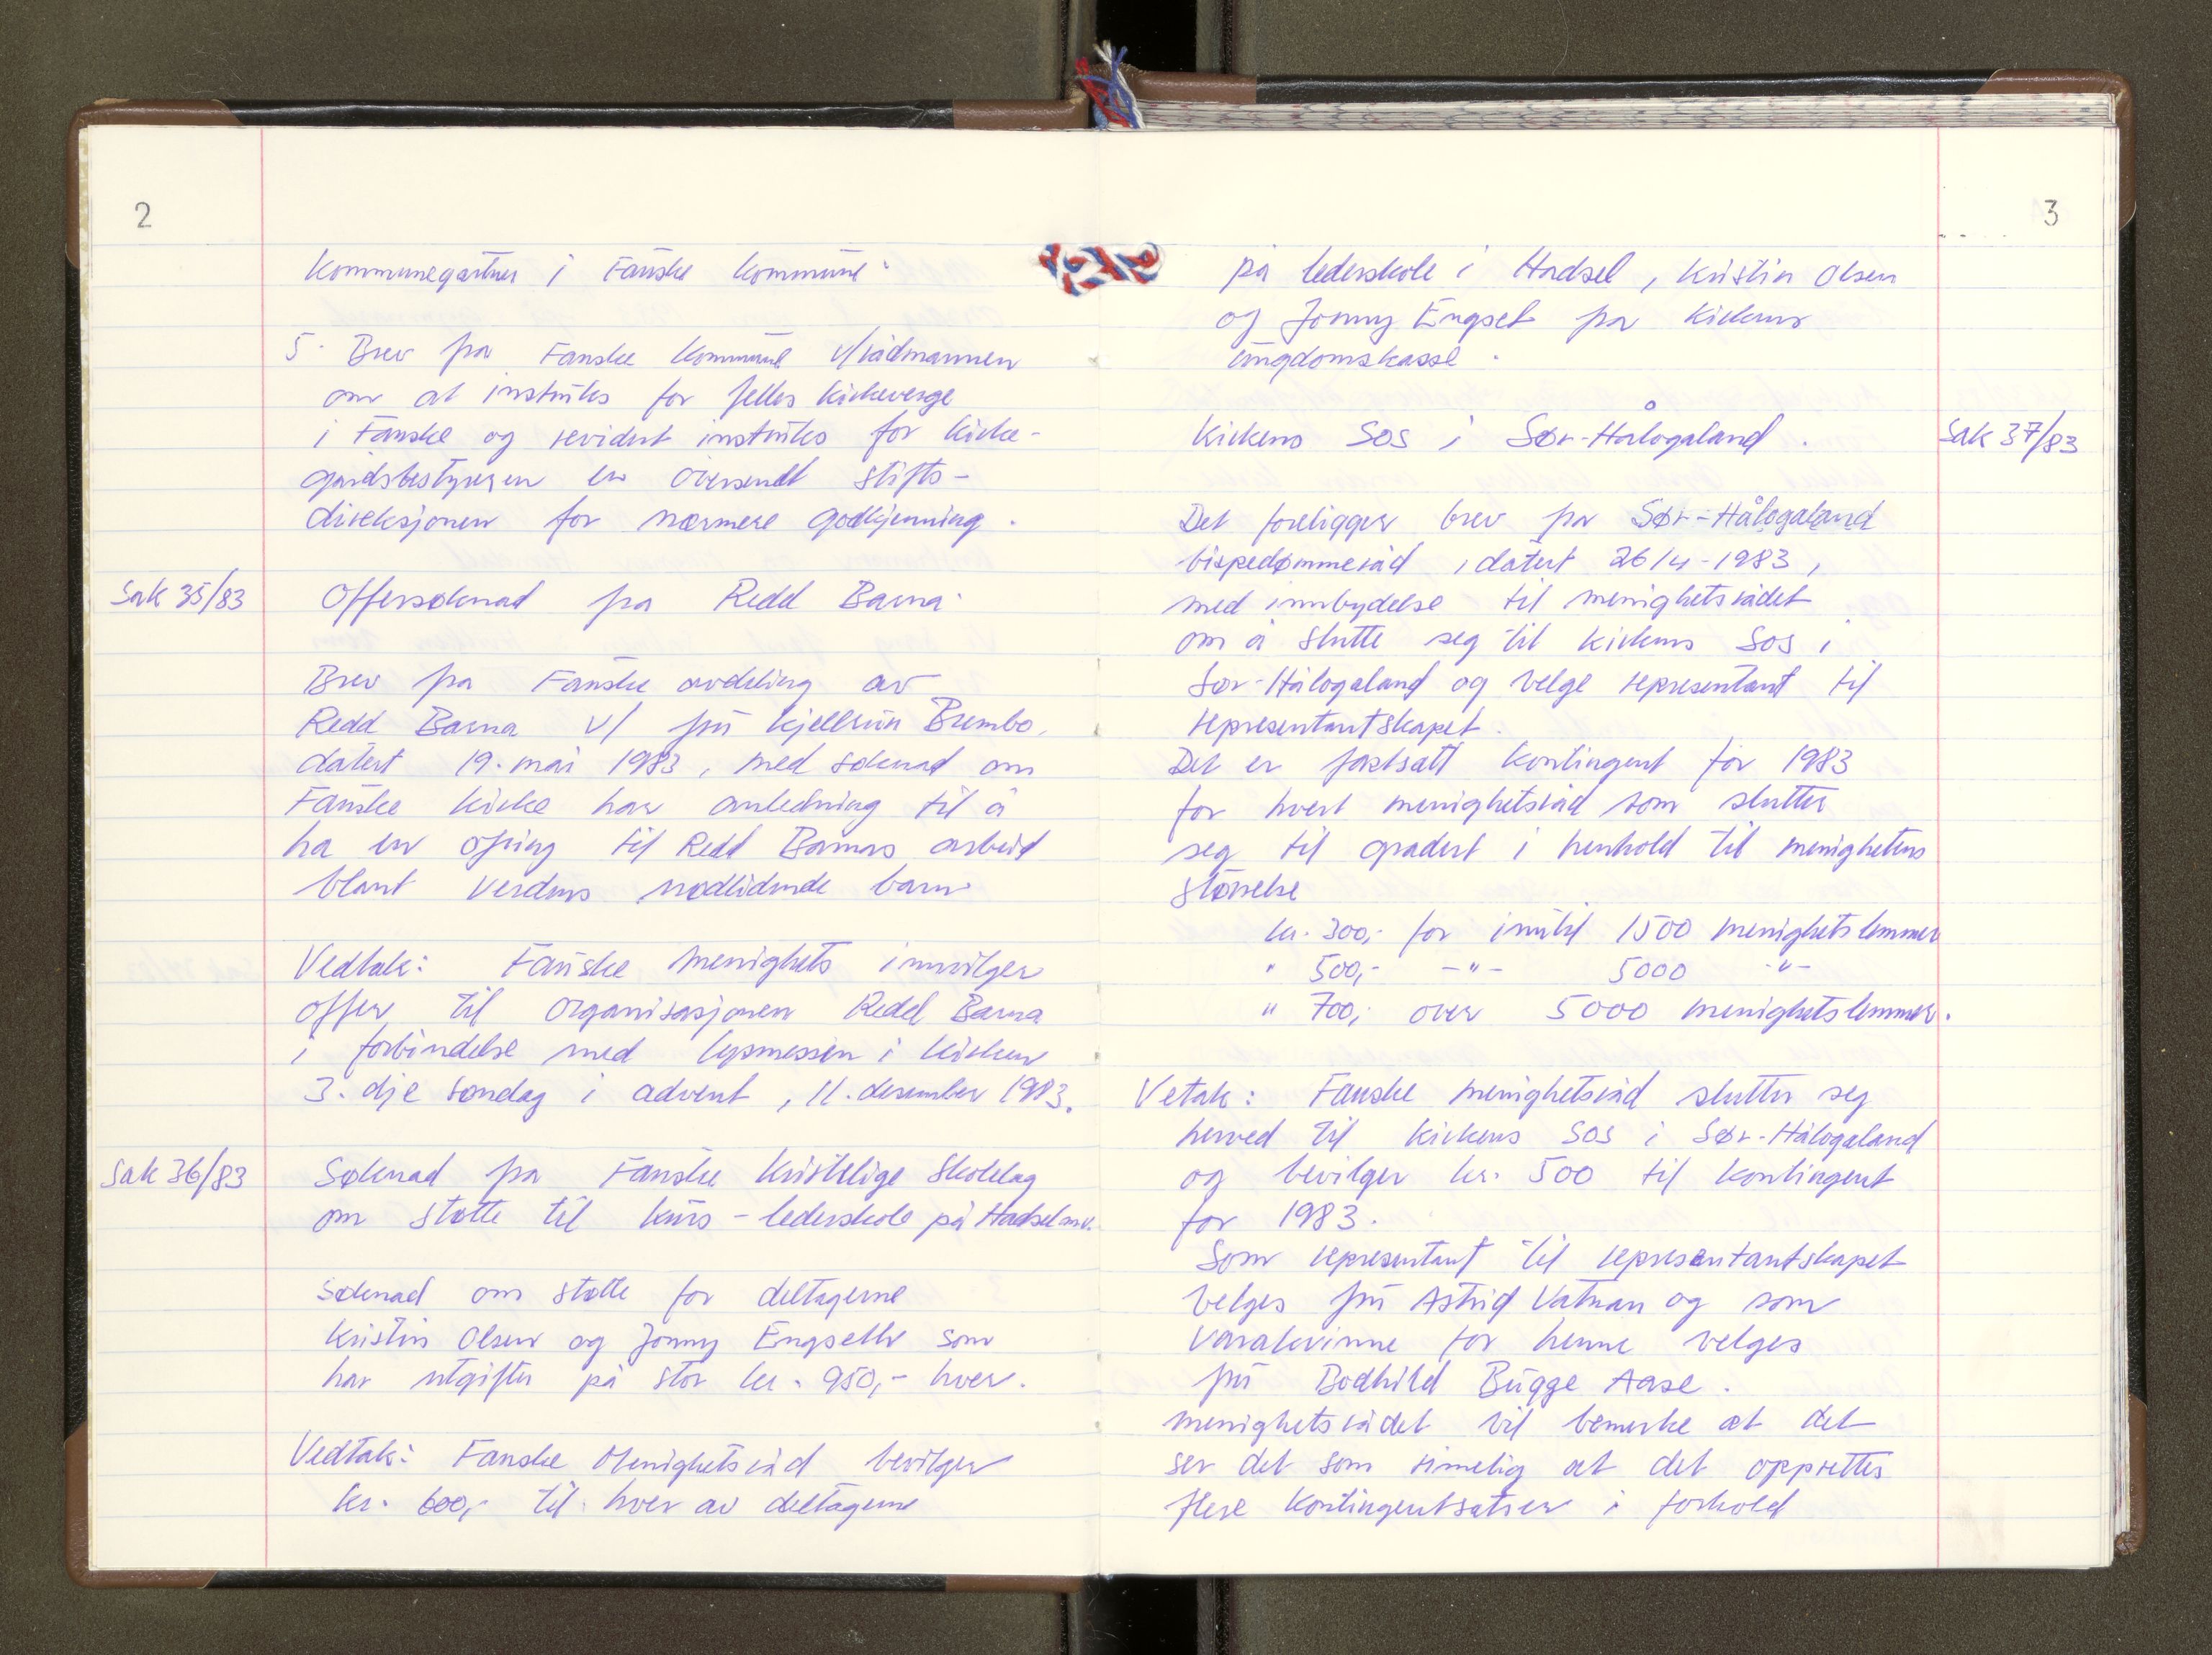 2
Kommunegartner i Fauske kommune.
5. Brev fra Fauske kommune v/rådmannen
om at instruks for felles kirkeverge
i Fauske og revidert instruks for kirke-
gårdsbestyreren er oversendt stifts-
direksjonen for nærmere godkjenning.
Sak 35/83
Offersøknad fra Redd Barna.
Brev fra Fauske avdeling av
Redd Barna v/ fru Kjellrun Brembo,
datert 19. mai 1983, med søknad om
Fauske kirke har anledning til å
ha en ofring til Redd Barnas arbeid
blant verdens nødlidende barn
Vedtak: Fauske menighets innvilger
offer til organisasjonen Redd Barna
i forbindelse med lysmessen i kirken
3. dje søndag i advent, 11. desember 1983.
Sak 36/83
Søknad fra Fauske Kristelige Skolelag
om støtte til kurs - lederskole på Hadsel m.v.
Søknad om støtte for deltagerne
Kristin Olsen og Jonny Engseth som
har utgifter på stor kr. 950,- hver.
Vedtak: Fauske Menighetsråd bevilger
kr. 600,- til hver av deltagerne
3
på lederskole i Hadsel, Kristin Olsen
og Jonny Engset fra Kirkens
Ungdomskasse.
Kirkens SOS i Sør-Hålogaland.
Sak 37/83
Det foreligger brev fra Sør-Hålogaland
bispedømmeråd, datert 26/4-1983,
med innbydelse til menighetsrådet
om å slutte seg til Kirkens SOS i
Sør-Hålogaland og velge representant til
representantskapet.
Det er fastsatt kontingent for 1983
for hvert menighetsråd som slutter
seg til gradert i henhold til menighetens
størrelse
kr. 300,- for inntil 1500 menighetslemmer
" 500,- -"- 5000 -"-
" 700,- over 5000 menighetslemmer.
Vetak: Fauske menighetsråd slutter seg
herved til Kirkens SOS i Sør-Hålogaland
og bevilger kr. 500 til kontingent
for 1983.
Som representant til representantskapet
velges fru Astrid Vatnan og som
varakvinne for henne velges
fru Bodhild Bugge Aase.
Menighetsrådet vil bemerke at det
ser det som rimelig at det opprettes
flere kontingentsatser i forhold